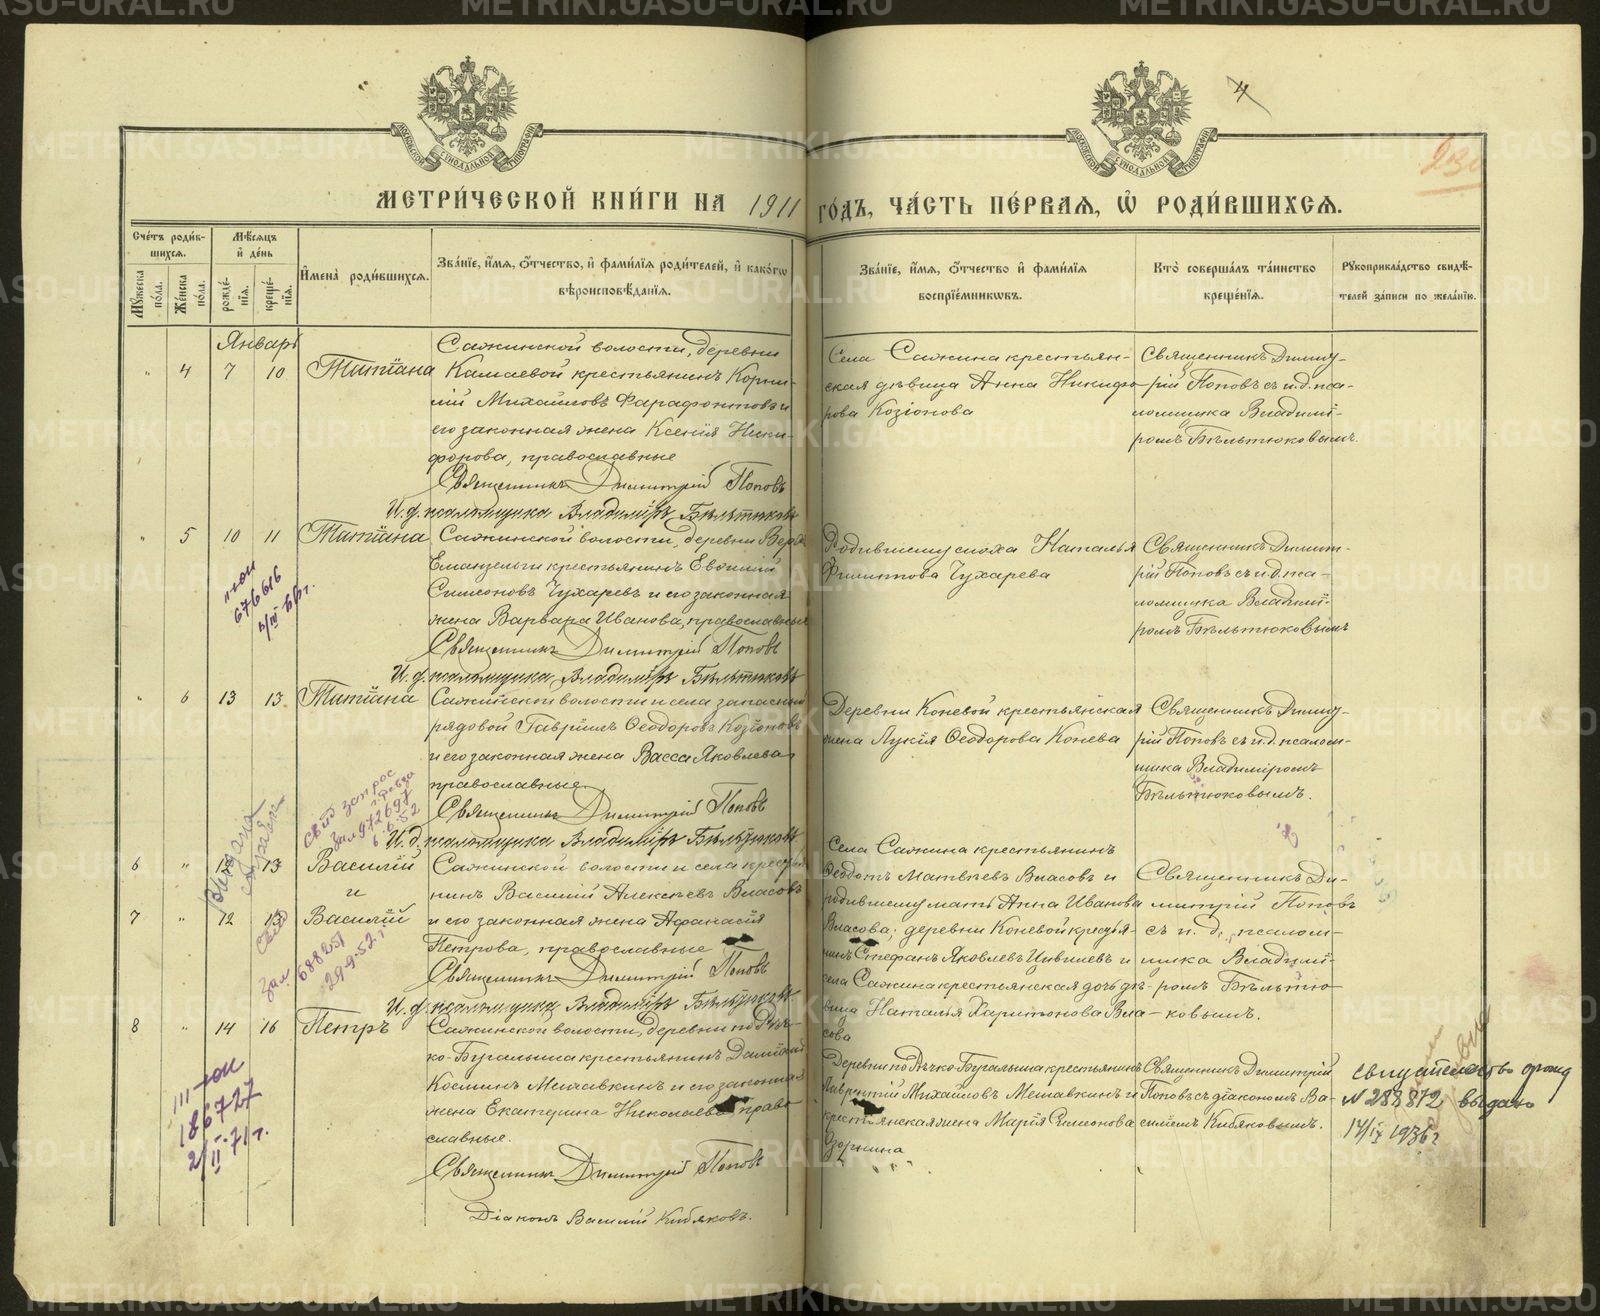 4
230
МЕТРИ́ЧЕСКОЙ КНИ́ГИ НА 1911 ГО́ДЪ, ЧА́СТЬ ПЕ́РВАЯ, Ѡ РОДИ́ВШИХСЯ.
Сче́тъ роди́в-
шихся.
Мꙋжеска по́ла.
Же́нска по́ла.
Мѣ́сяцъ
и́ де́нь
рожде́-
нїя.
креще́-
нїя.
И҆мена̀ роди́вшихся.
Зва́нїе, и҆́мя, ѻ҆́тчество, и҆ фами́лїя роди́телей, и҆ како́гѡ
вѣроисповѣ́данїя.
Зва́нїе, и҆́мя, ѻ҆́тчество и҆ фами́лїя
воспрїе́мникѡвъ.
Кто̀ соверша́лъ та́инство
креще́нїя.
Рꙋкоприкла́дство свидѣ́-
телей за́писи по жела́нїю.
Январь
" 4 7 10 Татіана
Сажинской волости, деревни
Камаевой крестьянинъ Корни-
лій Михайловъ Фарафонтовъ и
его законная жена Ксенія Ники-
форова, православные
Священникъ Димитрій Поповъ
И. д. псаломщика Владиміръ Бѣльтюковъ
Села Сажина крестьян-
ская дѣвица Анна Никифо-
рова Козіонова
Священникъ Димит-
рій Поповъ съ и. д. пса-
ломщика Владимі-
ромъ Бѣльтюковымъ.
" 5 10 11 Татіана
Сажинской волости, деревни Верхъ
крестьянинъ Евѳимій
Симеоновъ Чухаревъ и его законная
жена Варвара Иванова, православные
Священникъ Димитрій Поповъ
И. д. псаломщика Владиміръ Бѣльтюковъ
Родившему сноха Наталья
Филиппова Чухарева
Священникъ Димит-
рій Поповъ съ и. д. пса-
ломщика Владимі-
ромъ Бѣльтюковымъ
676616
" 6 13 13 Татіана
Сажинской волости и села запасный
рядовой Гавріилъ Ѳеодоровъ Козіоновъ
и его законная жена Васса Яковлева
православные
Священникъ Димитрій Поповъ
И. д. псаломщика Владиміръ Бѣльтюковъ
Деревни Коневой крестьянская
жена Лукія Ѳеодорова Конева
Священникъ Димит-
рій Поповъ съ и. д. псалом-
щика Владиміромъ
Бѣльтюковымъ.
запрос
972697
6.6.52
Выдана
справка
6 " 12 13 Василій
и
7 " 12 13 Василій
Сажинской волости и села кресть-
нинъ Василій Алексѣевъ Власовъ
и его законная жена Аѳанасія
Петрова, православные
Священникъ Димитрій Поповъ
И. д. псаломщика Владиміръ Бѣльтюковъ
Села Сажина крестьянинъ
Ѳеодотъ Матвѣевъ Власовъ и
родившему мать Анна Иванова
Власова; деревни Коневой крестья-
нинъ Стефанъ Яковлевъ и
села Сажина крестьянская дочь дѣ-
вица Наталья Харитонова Вла-
сова
Священникъ Ди-
митрій Поповъ
съ и. д. псалом-
щика Владимі-
ромъ Бѣльтю-
ковымъ.
688251
29-9-52 г.
8 " 14 16 Петръ
Сажинской волости, деревни
ко-Бугалыша крестьянинъ Даміанъ
Косминъ Мешавкинъ и его законная
жена Екатерина Николаева право-
славные.
Священникъ Димитрій Поповъ
Діаконъ Василій Кибяковъ.
Бугалыша крестьянинъ
Лаврентій Михайловъ Мешавкинъ и
крестьянская жена Марія Симонова
Озорнина
Священникъ Димитрій
Поповъ съ діакономъ Ва-
силіемъ Кибяковымъ.
III-юи
186727
2/II-71 г.
свидетельство о рожд
№ 288872 выдано
17/IX 1936 г